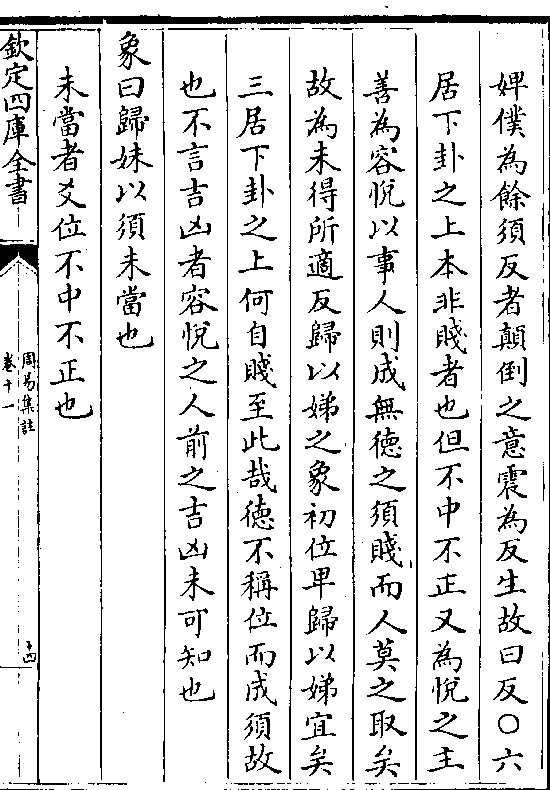 婢僕為餘須反者顛倒之意震為反生故曰反○六
居下卦之上本非賤者也但不中不正又為悅之主
善為容悅以事人則成無德之須賤而人莫之取矣
故為未得所適反歸以娣之象初位卑歸以娣宜矣
三居下卦之上何自賤至此哉德不稱位而成須故
也不言吉凶者容悅之人前之吉凶未可知也
象曰歸妹以須未當也
未當者爻位不中不正也
欽定四庫全書
周易集註
卷十一
十四